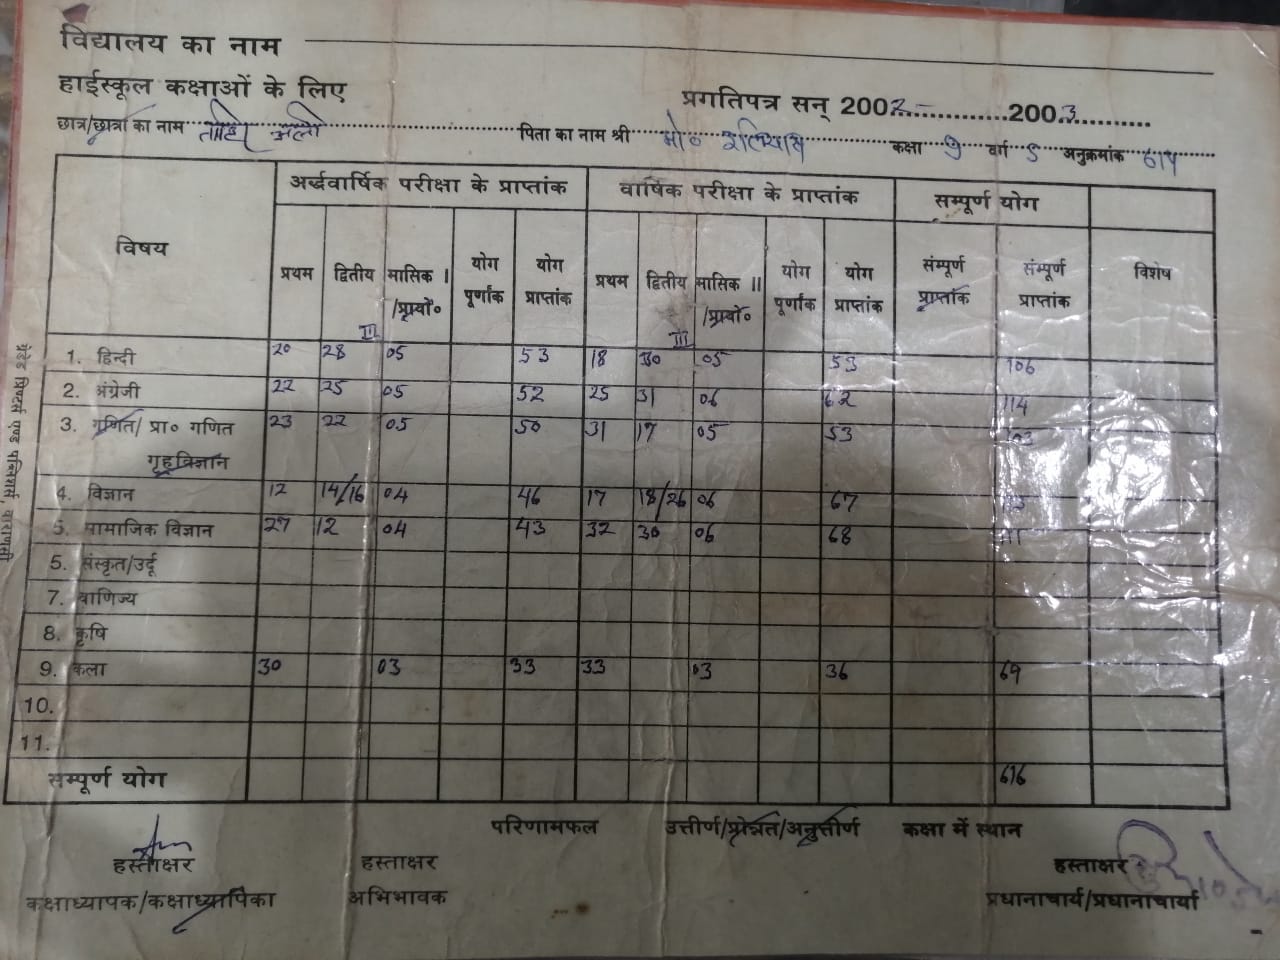 विद्यालय का नाम
हाईस्कूल कक्षाओं के लिए
प्रगतिपत्र सन् 2002 2003
छात्र/छात्रा का नाम ताहिर अली पिता का नाम श्री मो० इलियास कक्षा 9 वर्ग अनुक्रमांक
विषय अर्द्धवार्षिक परीक्षा के प्राप्तांक वार्षिक परीक्षा के प्राप्तांक सम्पूर्ण योग
प्रथम द्वितीय मासिक I /प्रायो० योग पूर्णांक योग प्राप्तांक प्रथम द्वितीय मासिक II /प्रायो० योग पूर्णांक योग प्राप्तांक संम्पूर्ण प्राप्तांक संम्पूर्ण प्राप्तांक विशेष
III III
1. हिन्दी 20 28 05 53 18 30 05 53 106
2. अंग्रेजी 22 25 05 52 25 31 06 62 114
3. गणित/ प्रा० गणित 23 22 05 50 31 17 05 53 103
गृहविज्ञान
4. विज्ञान 12 14/16 04 46 17 18/26 06 67
5. सामाजिक विज्ञान 27 12 04 43 32 30 06 68 111
5. संस्कृत/उर्दू
7. वाणिज्य
8. कृषि
9. कला 30 03 33 33 03 36 69
10.
11.
सम्पूर्ण योग 616
परिणामफल उत्तीर्ण/प्रोन्नत/अनुत्तीर्ण कक्षा में स्थान
हस्ताक्षर हस्ताक्षर हस्ताक्षर
कक्षाध्यापक/कक्षाध्यापिका अभिभावक प्रधानाचार्य/प्रधानाचार्या